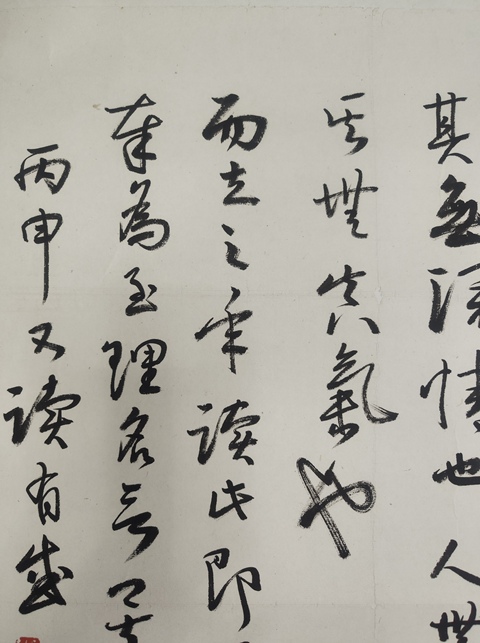 其無深情也人無
其無真氣也
而立之年讀此即
奉為至理名言
丙申又讀有感